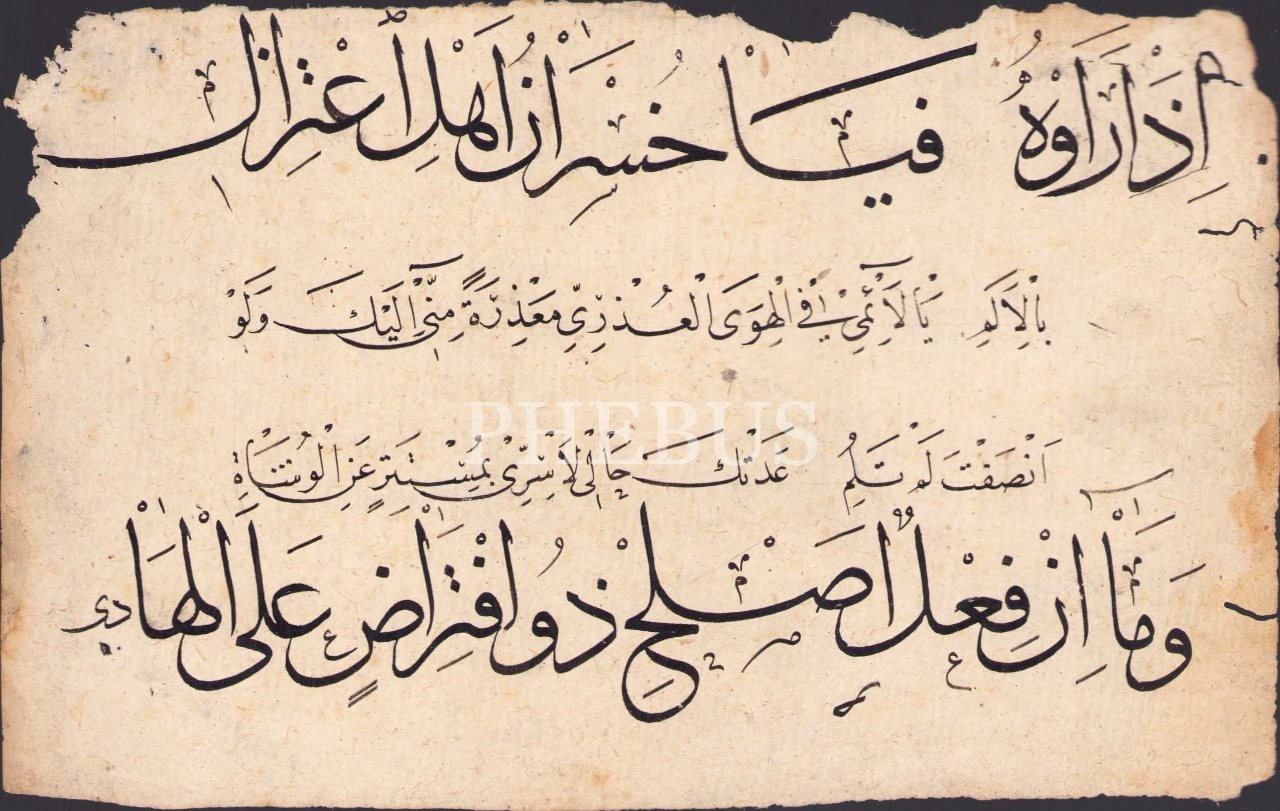 إِذَا رَأَوْهُ فَيَا خُسْرَانَ أَهْلِ اعْتِزَالِ
بِالْأَلَمِ يَا لَائِمِي فِي الْهَوَى الْعُذْرِيِّ مَعْذِرَةً مِنِّي إِلَيْكَ وَلَوْ
PHEBUS
أَنْصَفْتَ لَمْ تَلُمِ عَدَتْكَ حَالِي لَا سِرِّي بِمُسْتَتِرٍ عَنِ الْوُشَاةِ
وَمَا إِنْ فِعْلٌ اصْلَحُ ذُو افْتِرَاضٍ عَلَى الْهَادِي